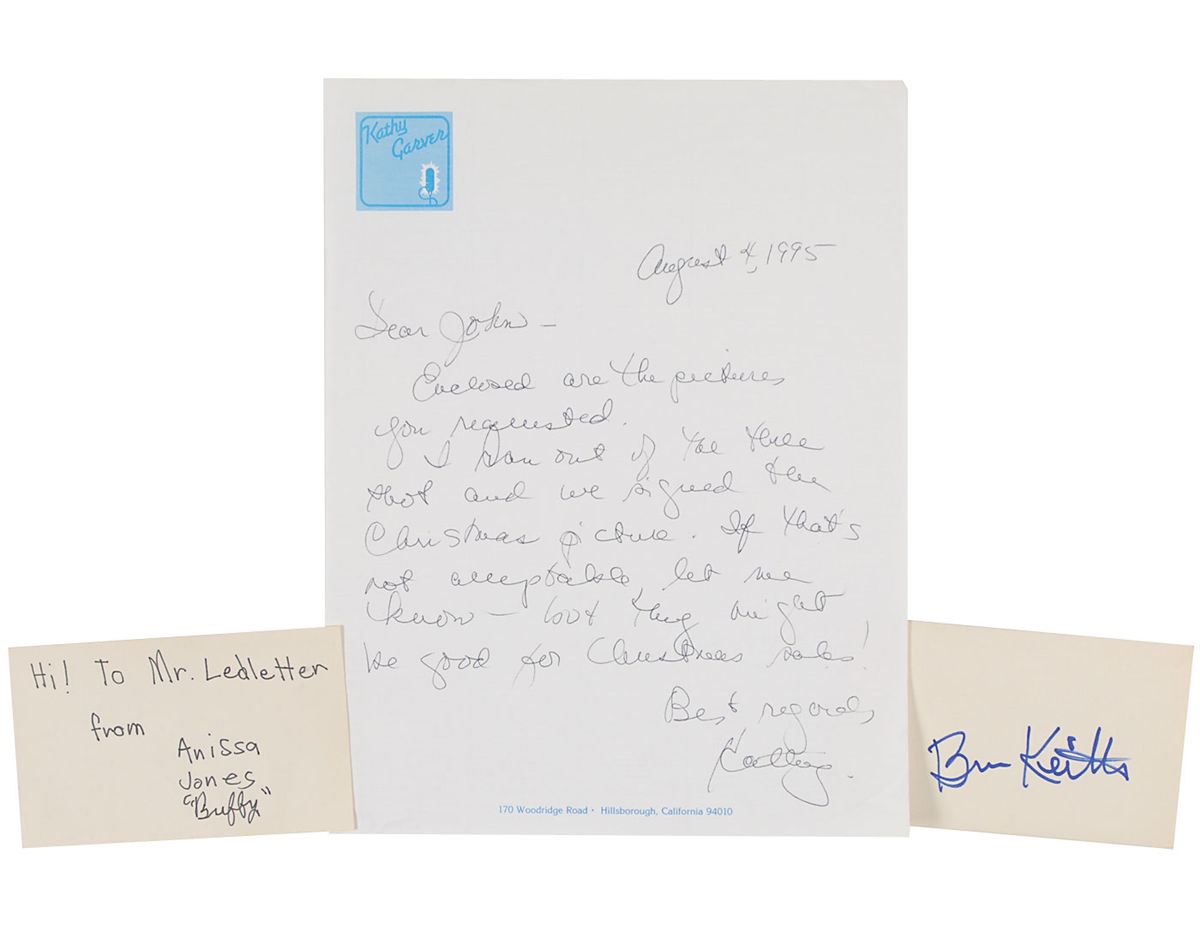 Kathy
Garver
August 4, 1995
Dear John -
Enclosed are the pictures
you requested.
I ran out of the three
shot and we signed the
Christmas picture. If that's
not acceptable, let me
know - but they might
be good for Christmas sales!
Best regards
Kathy.
170 Woodridge Road · Hillsborough, California 94010
Hi! To Mr. Ledletter
from
Anissa
Jones
"Buffy"
Brian Keith